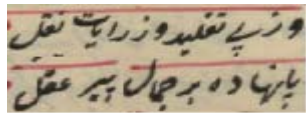 وز پی تقلید وز رایات نقل
پا نهاده بر جمال پیر عقل